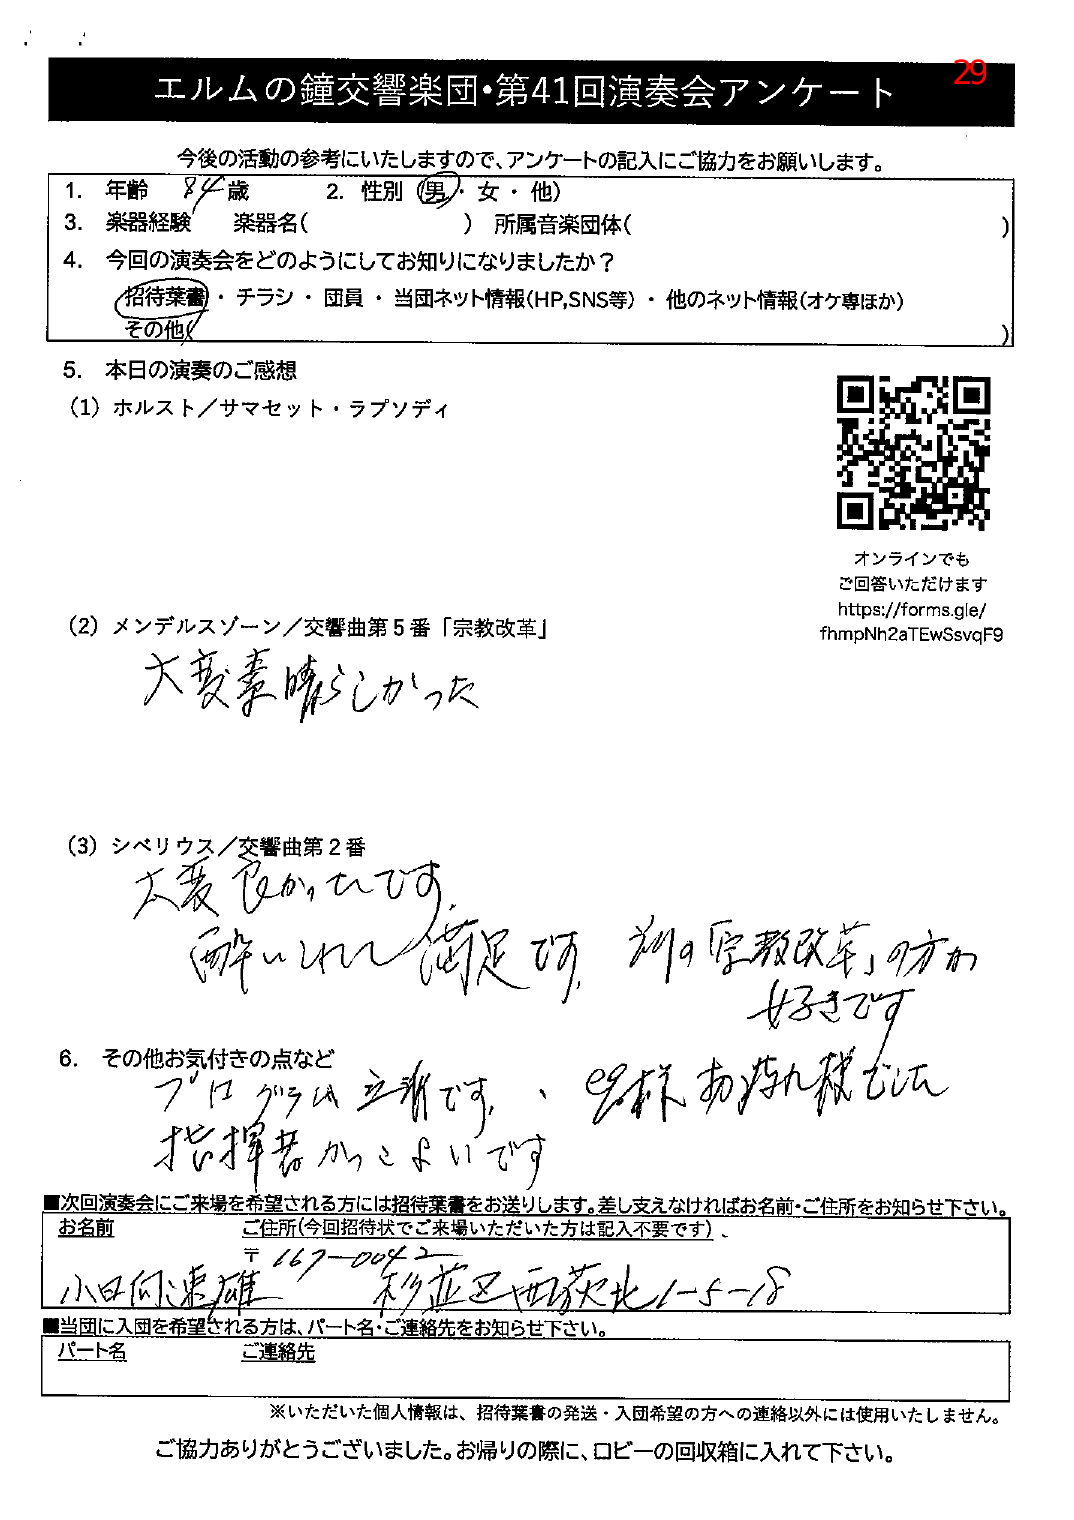 29
エルムの鐘交響楽団・第41回演奏会アンケート
今後の活動の参考にいたしますので、アンケートの記入にご協力をお願いします。
1. 年齢 84歳 2. 性別 (男・女・他)
3. 楽器経験 楽器名( ) 所属音楽団体( )
4. 今回の演奏会をどのようにしてお知りになりましたか？
招待葉書・チラシ・団員・当団ネット情報(HP,SNS等)・他のネット情報(オケ専ほか)
その他( )
5. 本日の演奏のご感想
(1) ホルスト／サマセット・ラプソディ
オンラインでも
ご回答いただけます
https://forms.gle/
fhmpNh2aTEwSsvqF9
(2) メンデルスゾーン／交響曲第5番「宗教改革」
大変素晴らしかった
(3) シベリウス／交響曲第2番
大変良かったです。
酔いしれて満足です。前の「宗教改革」の方が
好きです
6. その他お気付きの点など
プログラムは立派です。、皆様お疲れ様でした
指揮者かっこよいです
■次回演奏会にご来場を希望される方には招待葉書をお送りします。差し支えなければお名前・ご住所をお知らせ下さい。
お名前 ご住所(今回招待状でご来場いただいた方は記入不要です)
〒167-0042
小日向速雄 杉並区西荻北1-5-18
■当団に入団を希望される方は、パート名・ご連絡先をお知らせ下さい。
パート名 ご連絡先
※いただいた個人情報は、招待葉書の発送・入団希望の方への連絡以外には使用いたしません。
ご協力ありがとうございました。お帰りの際に、ロビーの回収箱に入れて下さい。